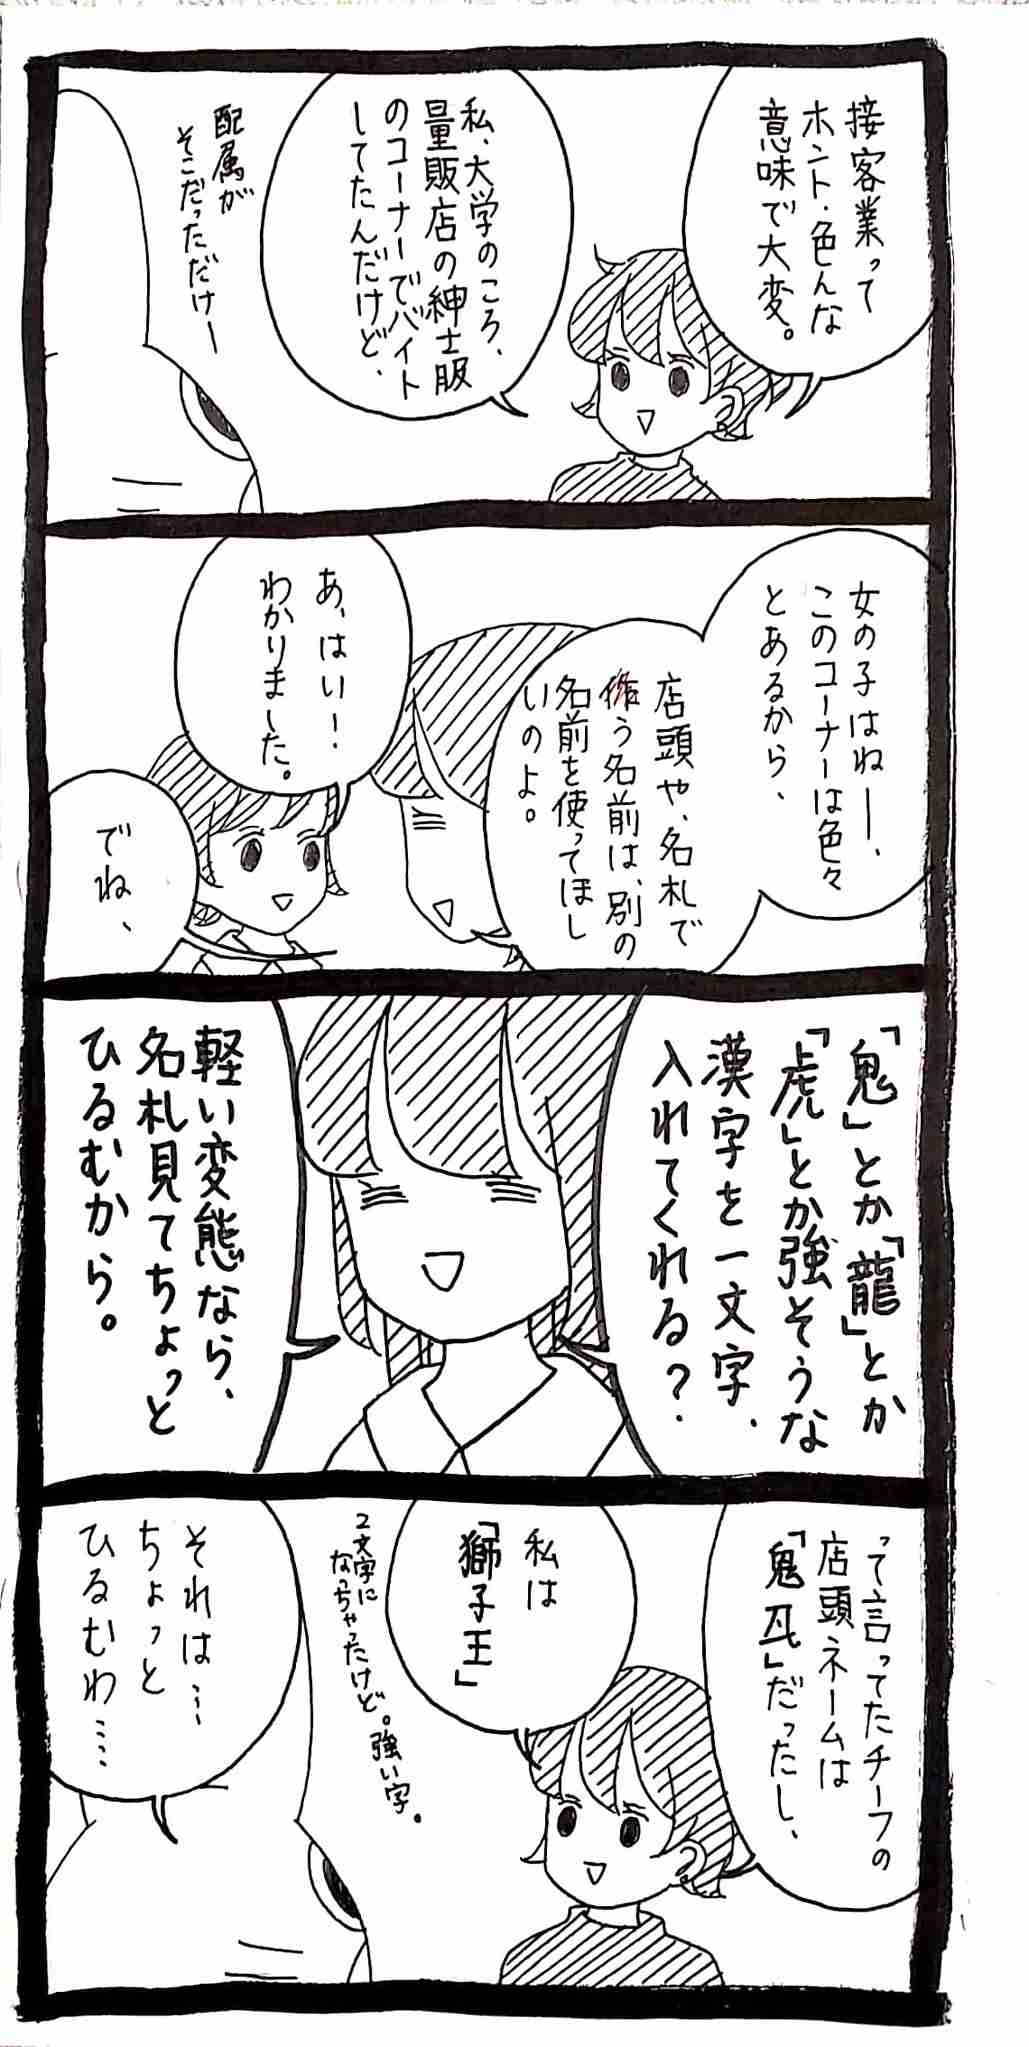 接客業って
ホント・色んな
意味で大変。
私、大学のころ、
量販店の紳士服
のコーナーでバイト
してたんだけど、
配属が
そこだっただけー
女の子はねー、
このコーナーは色々
とあるから、
店頭や、名札で
使う名前は、別の
名前を使ってほし
いのよ。
あ、はい！
わかりました。
でね、
「鬼」とか「龍」とか
「虎」とか強そうな
漢字を一文字、
入れてくれる？
軽い変態なら、
名札見てちょっと
ひるむから。
って言ってたチーフの
店頭ネームは
「鬼瓦」だったし、
私は
「獅子王」
2文字に
なっちゃったけど。強い字。
それは…
ちょっと
ひるむわ……